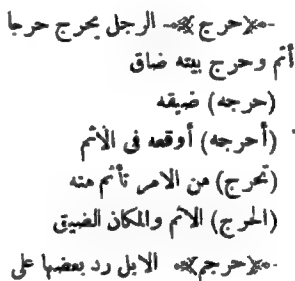 ﴿حرج﴾ الرجل يحرج حرجا
أثم وحرج بيته ضاق
(حرجه) ضيقه
(أحرجه) أوقعه فى الأثم
(تحرج) من الامر تأثم منه
(الحرج) الاثم والمكان الضيق
﴿حرجم﴾ الابل رد بعضها على